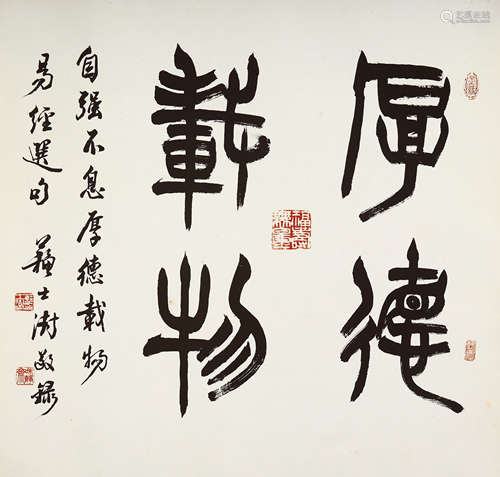 厚德
載物
自强不息厚德載物
易經選句 蘇士澍敬录